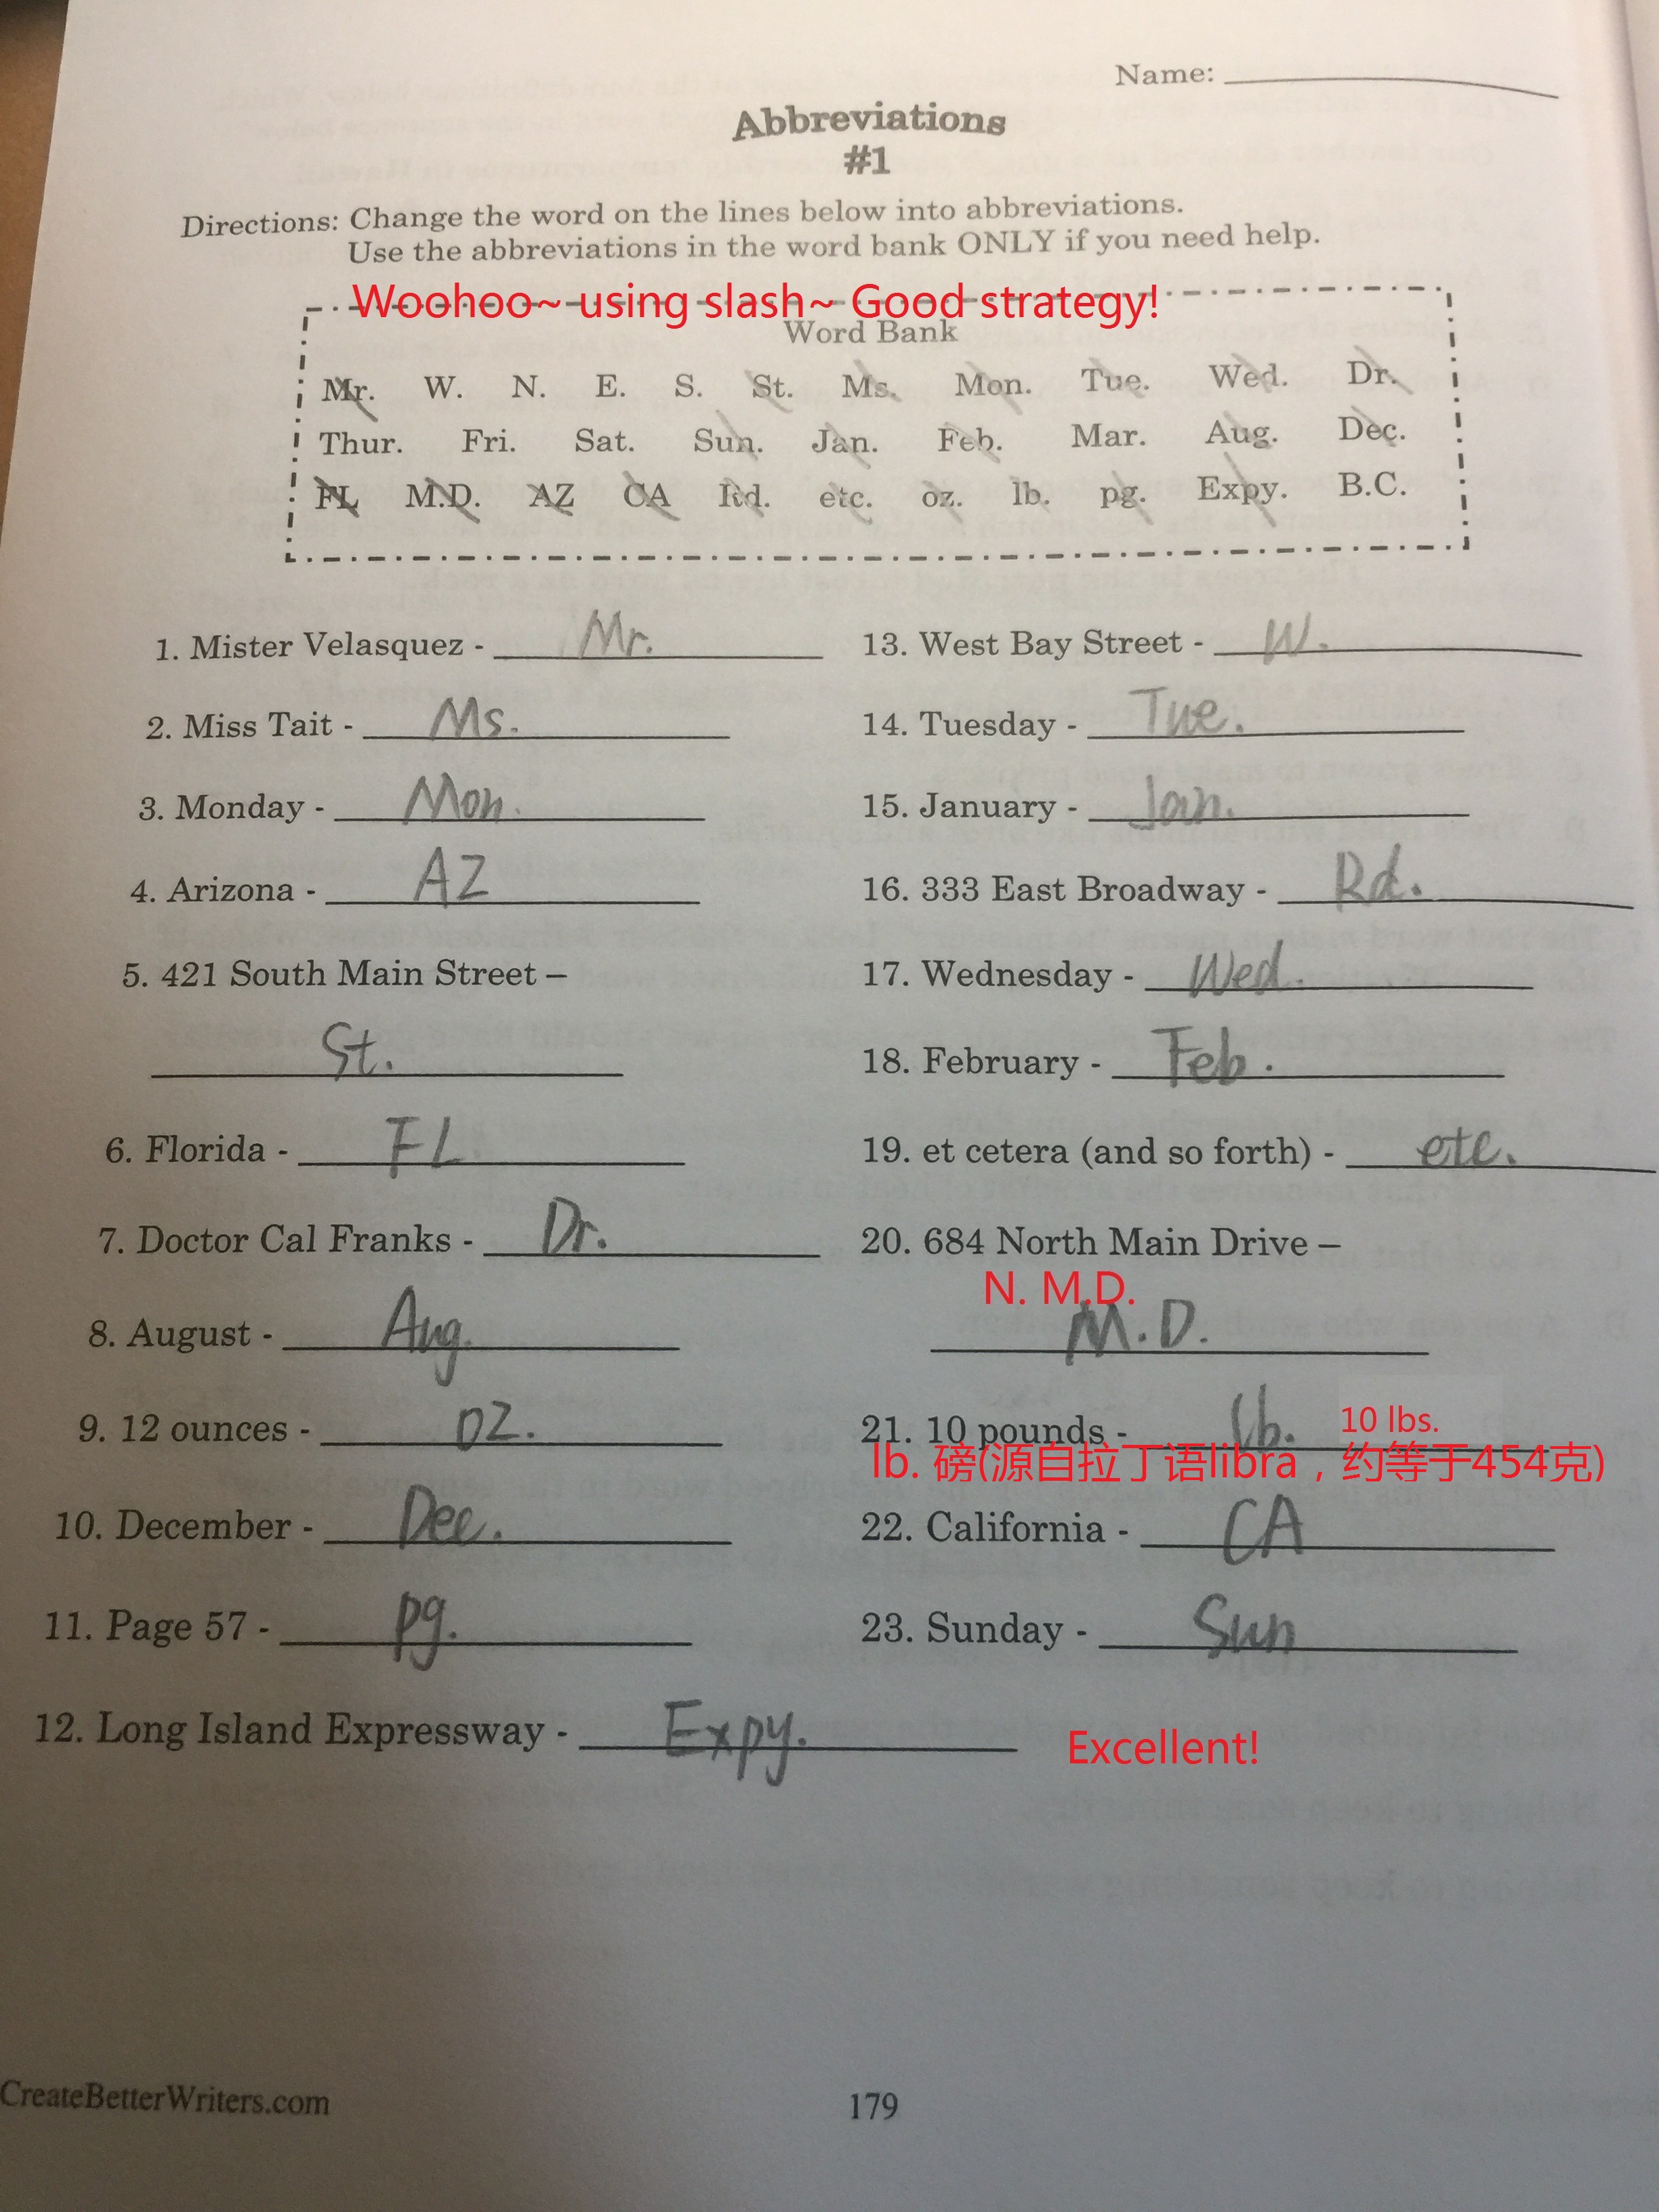 Name:
Abbreviations
#1
Directions: Change the word on the lines below into abbreviations.
Use the abbreviations in the word bank ONLY if you need help.
Woohoo~ using slash~ Good strategy!
Word Bank
Mr. W. N. E. S. St. Ms. Mon. Tue. Wed. Dr.
Thur. Fri. Sat. Sun. Jan. Feb. Mar. Aug. Dec.
FL M.D. AZ CA Rd. etc. oz. lb. pg. Expy. B.C.
1. Mister Velasquez - Mr.
2. Miss Tait - Ms.
3. Monday - Mon.
4. Arizona - AZ
5. 421 South Main Street –
St.
6. Florida - FL
7. Doctor Cal Franks - Dr.
8. August - Aug.
9. 12 ounces - oz.
10. December - Dec.
11. Page 57 - pg.
12. Long Island Expressway - Expy.
13. West Bay Street - W.
14. Tuesday - Tue.
15. January - Jan.
16. 333 East Broadway - Rd.
17. Wednesday - Wed.
18. February - Feb.
19. et cetera (and so forth) - etc.
20. 684 North Main Drive –
N. M.D.
M.D.
21. 10 pounds - lb. 10 lbs.
lb. 磅(源自拉丁语libra，约等于454克)
22. California - CA
23. Sunday - Sun
Excellent!
CreateBetterWriters.com
179